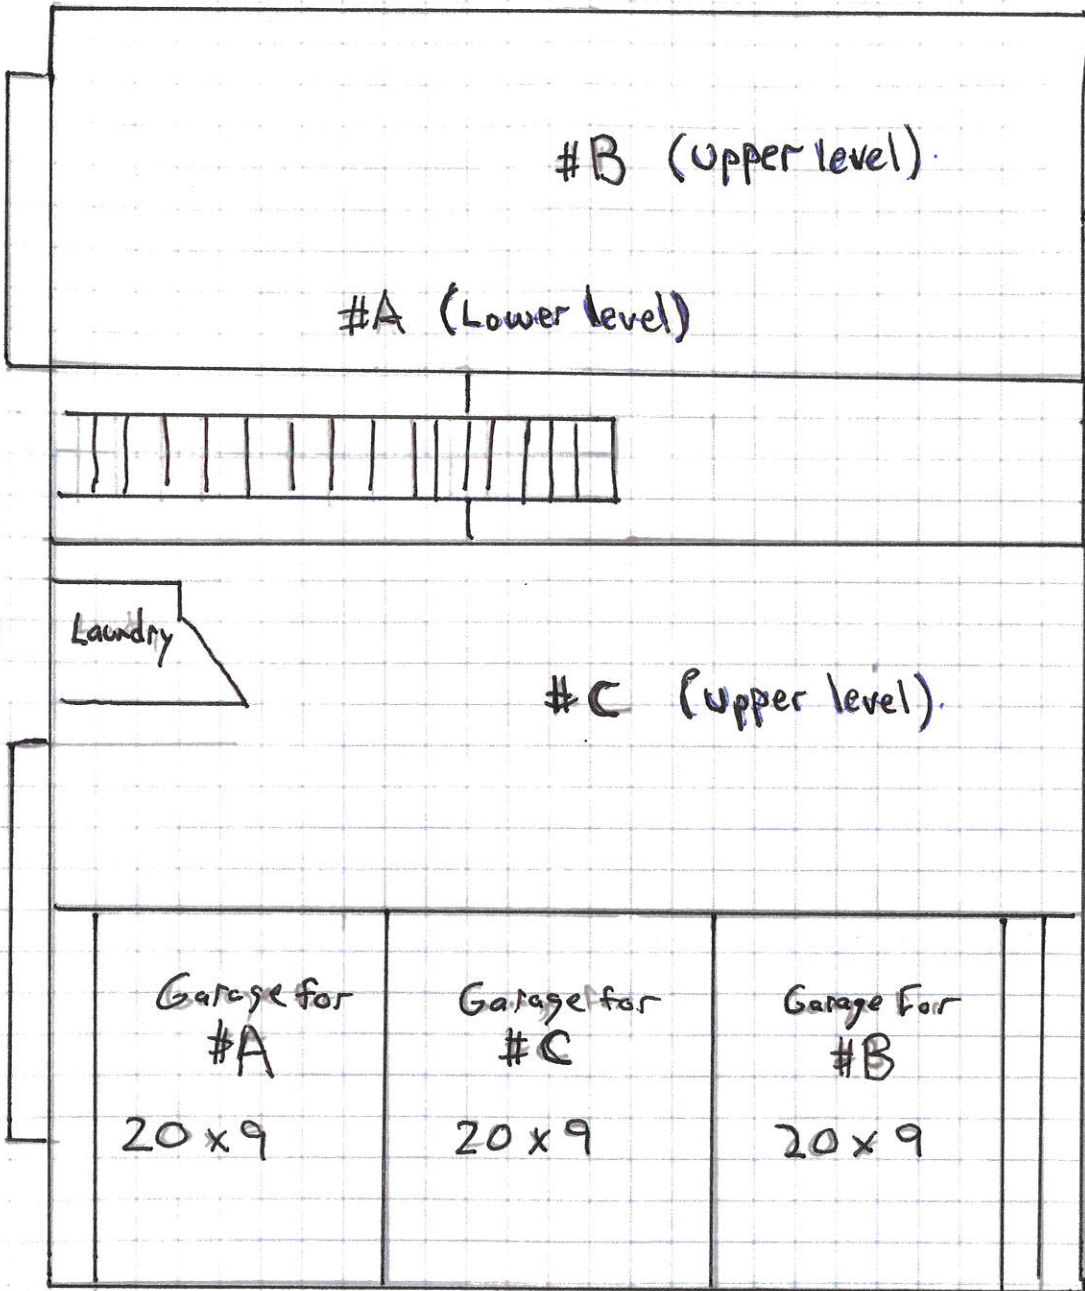 #B (Upper level).
#A (Lower level)
Laundry
#C (Upper level).
Garage for
#A
20 x 9
Garage for
#C
20 x 9
Garage For
#B
20 x 9